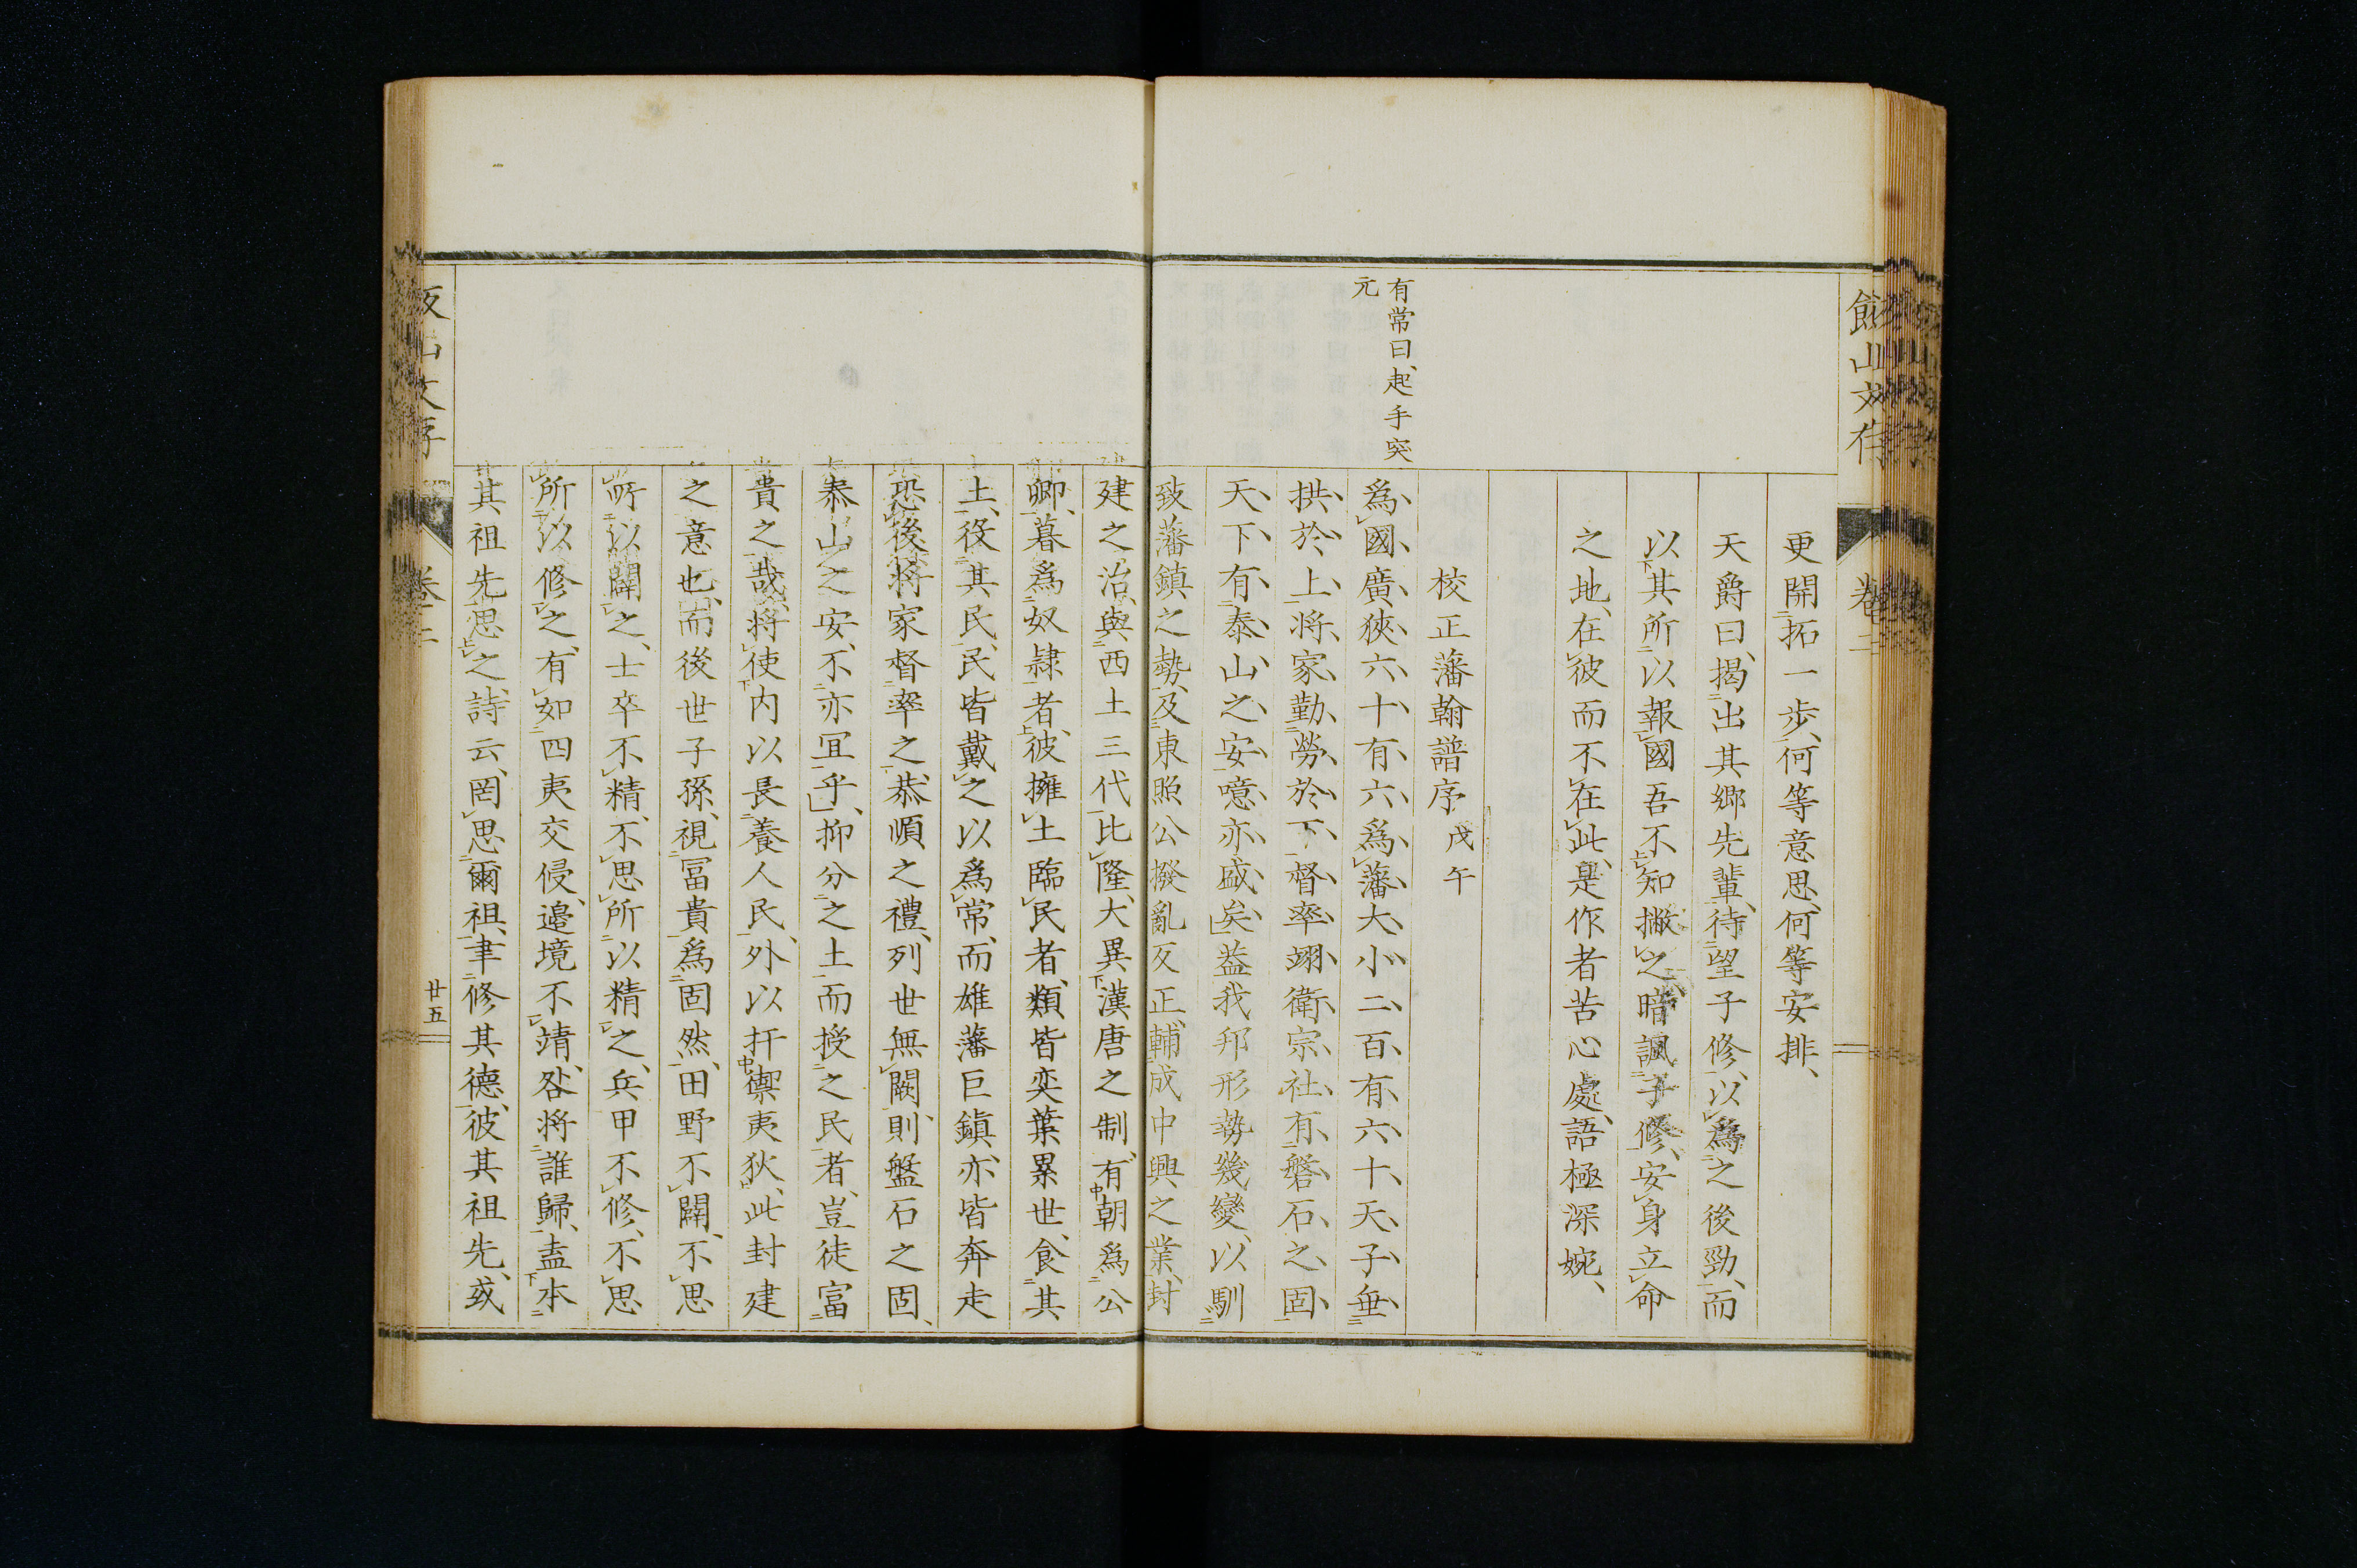 館山文存
卷二
更開拓一步、何等意思、何等安排、
天爵曰、揭出其鄉先輩、待望子修、以爲之後勁、而
以其所以報國吾不知撇之、暗諷子修、安身立命
之地、在彼而不在此、是作者苦心處、語極深婉、
校正藩翰譜序 戊午
有常曰、起手突
元
爲國廣狹六十有六、爲藩大小二百有六十、天子垂
拱於上、將家勤勞於下、督率翊衛、宗社有磐石之固、
天下有泰山之安、噫亦盛矣、蓋我邦形勢幾變、以馴
致藩鎮之勢、及東照公撥亂反正、輔成中興之業、封
建之治、與西土三代比隆、大異漢唐之制、有朝爲公
卿、暮爲奴隸者、彼擁土臨民者、類皆奕葉累世、食其
土、役其民、民皆戴之以爲常、而雄藩巨鎭、亦皆奔走
恐後、將家督率之、恭順之禮、列世無闕、則盤石之固、
泰山之安、不亦冝乎、抑分之土而授之民者、豈徒富
貴之哉、將使内以長養人民、外以扞禦夷狄、此封建
之意也、而後世子孫、視冨貴爲固然、田野不闢、不思
所以闢之、士卒不精、不思所以精之、兵甲不修、不思
所以修之、有如四夷交侵、邉境不靖、咎將誰歸、盍本
其祖先思之、詩云、罔思爾祖、聿修其德、彼其祖先、或
山文存
卷二
廿五